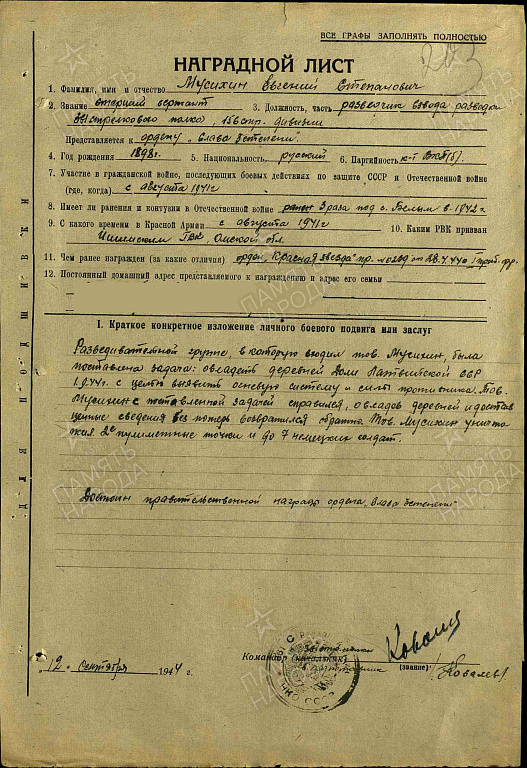 ВСЕ ГРАФЫ ЗАПОЛНЯТЬ ПОЛНОСТЬЮ
203
НАГРАДНОЙ ЛИСТ
1. Фамилия, имя и отчество Мусихин Евгений Степанович
2. Звание старший сержант 3. Должность, часть разведчик взвода разведки
стрелкового полка, дивизии
Представляется к ордену "Слава
4. Год рождения 1898г. 5. Национальность русский 6. Партийность к-т ВКП(б)
7. Участие в гражданской войне, последующих боевых действиях по защите СССР и Отечественной войне
(где, когда) с августа 1941г
8. Имеет ли ранения и контузии в Отечественной войне ранен 3 раза под г. Белым в 1942 г.
9. С какого времени в Красной Армии с августа 1941г 10. Каким РВК призван
Ишимским ГВК Омской обл.
11. Чем ранее награжден (за какие отличия) орден "Красная звезда" пр.
12. Постоянный домашний адрес представляемого к награждению и адрес его семьи
I. Краткое конкретное изложение личного боевого подвига или заслуг
Разведывательной группе, в которую входил тов. Мусихин, была
поставлена задача: овладеть деревней Латвийской ССР
с целью выявить огневую систему и силы противника. Тов.
Мусихин с поставленной задачей справился, овладев деревней и достав
ценные сведения без потерь возвратился обратно. Тов. Мусихин уничто
жил 2е пулеметные точки и до 7 немецких солдат.
Достоин правительственной награды ордена "Слава
Командир (начальник)
(звание)
Ковалев
"12" сентября 1944 г.
ПАМЯТЬ НАРОДА